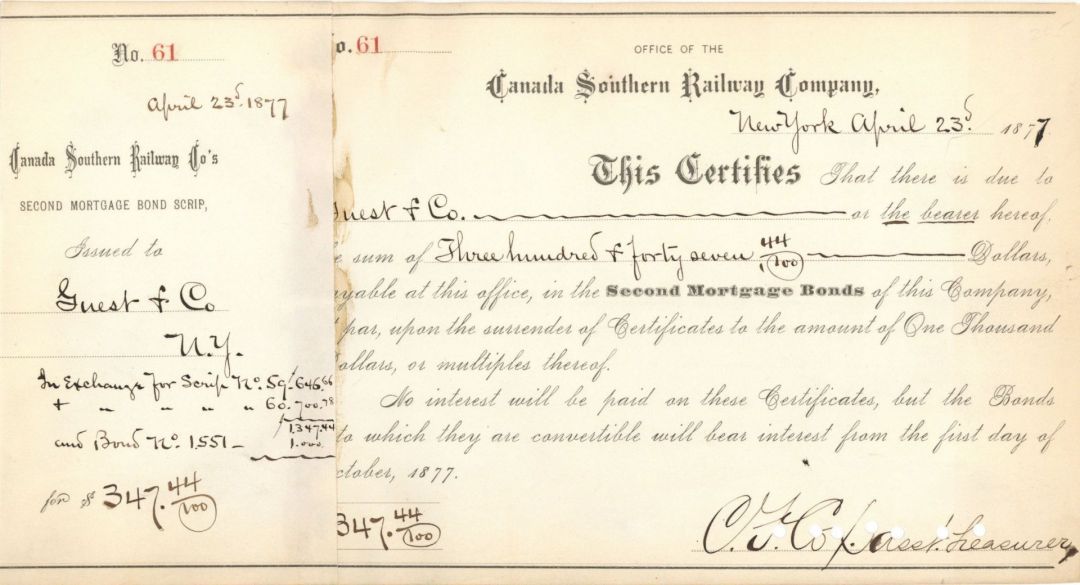 No. 61
April 23d. 1877
Canada Southern Railway Co's
SECOND MORTGAGE BOND SCRIP,
Issued to
Guest & Co
N.Y.
In Exchange for Scrip No. 59. 646.66
+ " " " " 60. 700.78
1,347.44
and Bond No. 1551 — 1.000
for $ 347.44/100
o. 61
OFFICE OF THE
Canada Southern Railway Company,
New York April 23d. 1877
This Certifies That there is due to
Guest & Co. or the bearer hereof.
e sum of Three hundred & forty seven 44/100 Dollars,
ayable at this office, in the Second Mortgage Bonds of this Company,
t par, upon the surrender of Certificates to the amount of One Thousand
ollars, or multiples thereof.
No interest will be paid on these Certificates, but the Bonds
to which they are convertible will bear interest from the first day of
ctober, 1877.
347.44/100
Asst. Treasurer